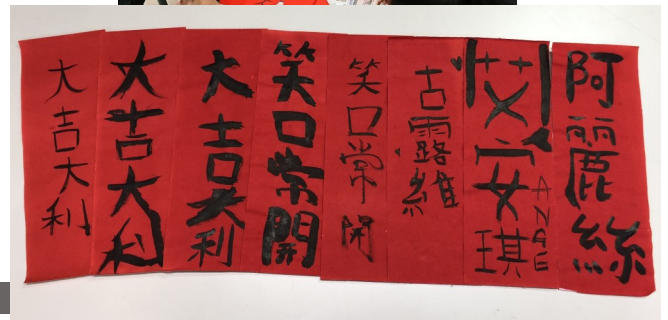 大吉大利
大吉大利
大吉大利
笑口常開
笑口常開
古露維
艾安琪
ANAE
阿麗絲